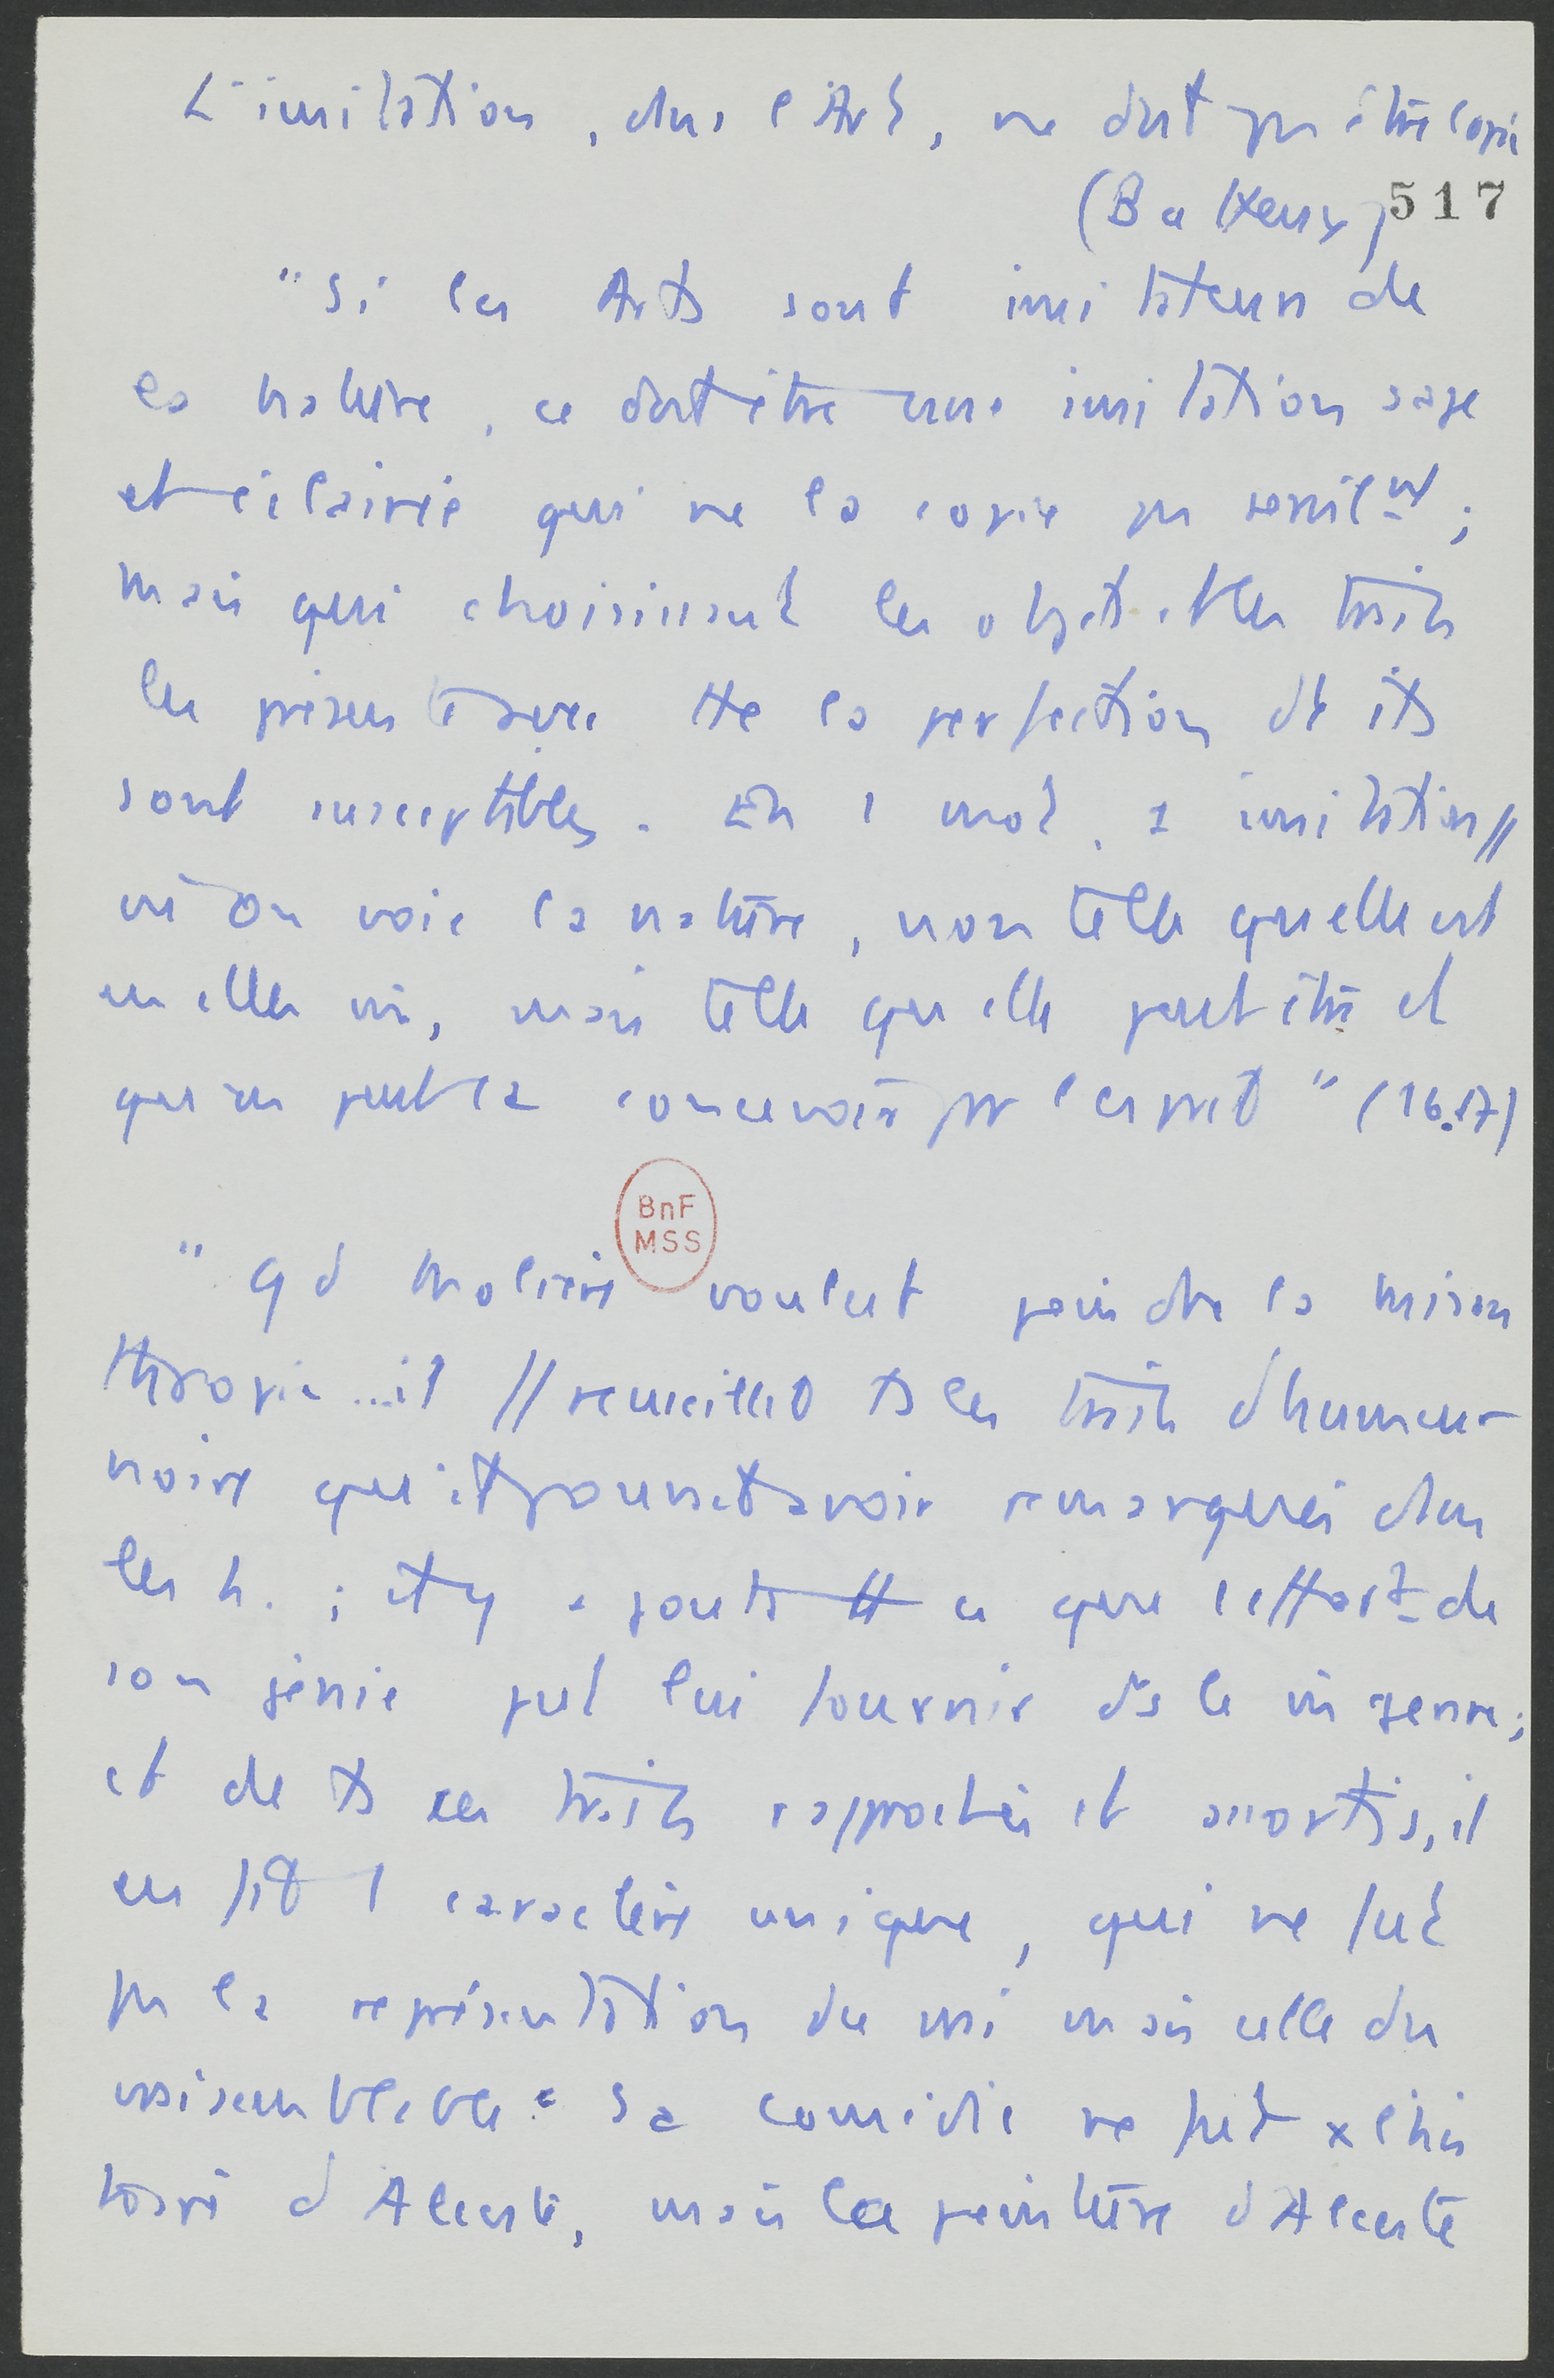 L'imitation, dans l'Art, ne doit pas être copie
(Batteux) 517
"Si les Arts sont imitateurs de
la nature, ce doit être une imitation sage
et éclairée qui ne la copie pas servilmt ;
mais qui choisissant les objets et les traits
les présente avec tte la perfection dt ils
sont susceptibles. En 1 mot, 1 imitation //
où on voie la nature, non telle quelle est
en elle m̂, mais telle qu elle peut être et
qu'on peut la concevoir pr l'esprit" (16.17)
BnF
MSS
"Qd Molière voulut peindre la misan
thropie ... il // recueillit ts les traits d'humeur
noire qu'il pouvait avoir remarqués dans
les h. ; il y ajouta tt ce que l'effort de
son génie put lui fournir ds le m̂ genre ;
et de ts ces traits rapprochés et assortis, il
en fit 1 caractère unique, qui ne fut
pas la représentation du vrai mais celle du
vraisemblable. Sa comédie ne fut x l'his
toire d'Alceste, mais la peinture d'Alceste